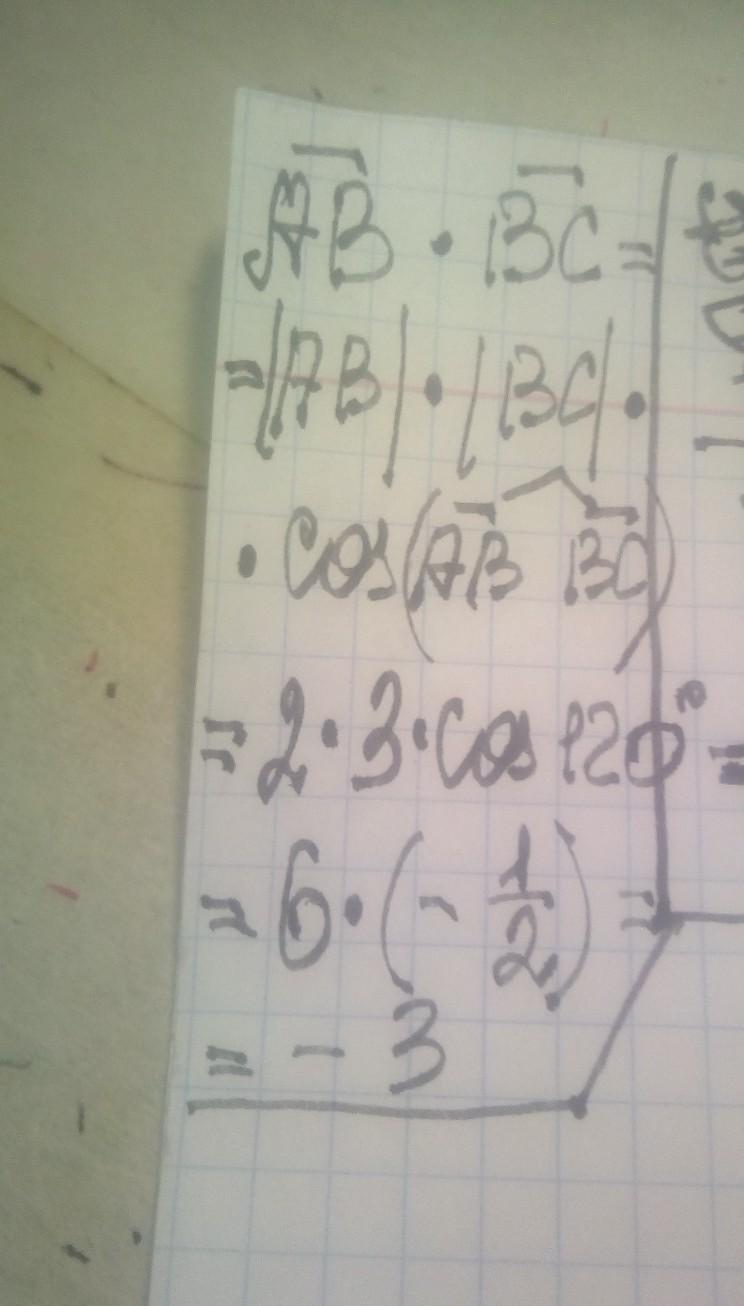 AB · BC =
= |AB| · |BC| ·
· cos(AB BC)
= 2 · 3 · cos 120° =
= 6 · (- 1/2) =
= - 3